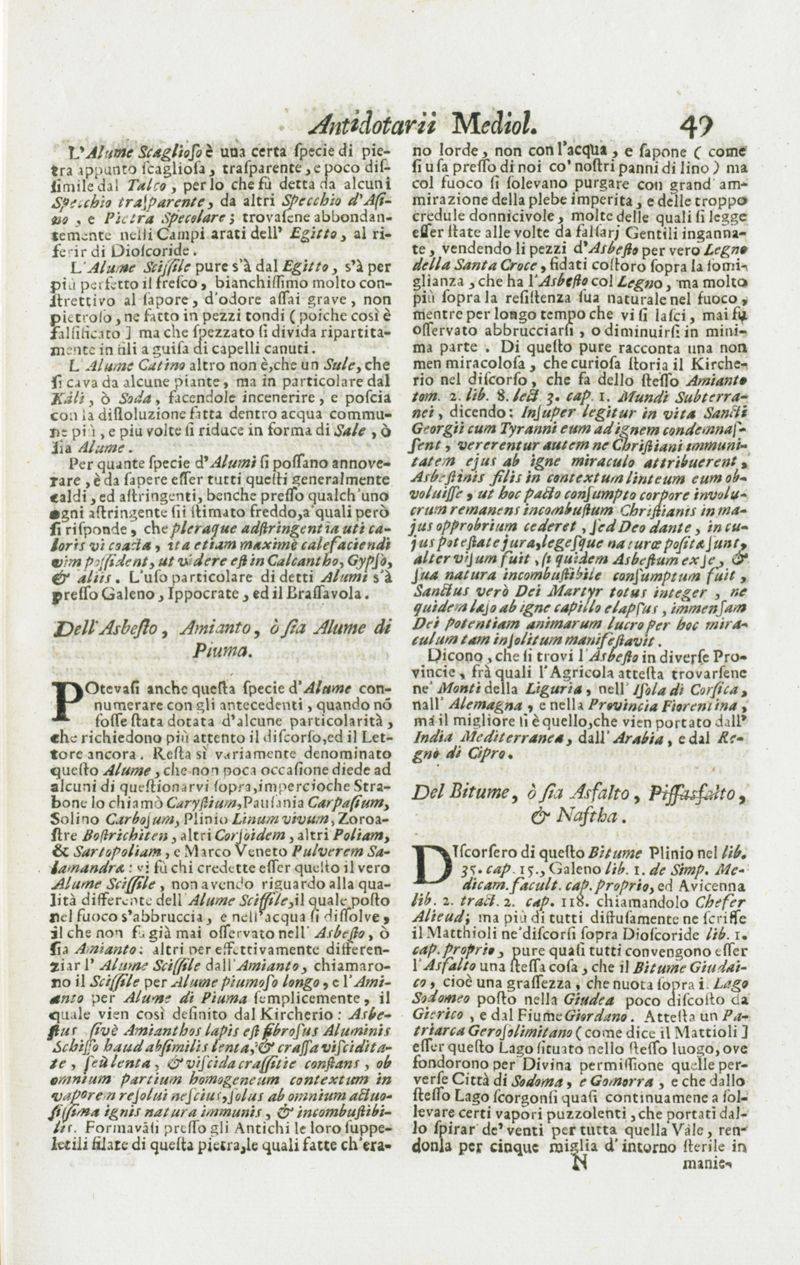 Antidotarii Mediol. 49
L'Alume Scaglioso è una certa ſpecie di pie-
tra appunto ſcaglioſa, traſparente, e poco diſ-
ſimile dal Talco, per lo che fù detta da alcuni
Specchio traſparente, da altri Specchio d'Aſi-
no, e Pietra Specolare; trovaſene abbondan-
temente nelli Campi arati dell' Egitto, al ri-
ferir di Dioſcoride.
L'Alume Sciſſile pure s'à dal Egitto, s'à per
più perfetto il freſco, bianchiſſimo molto con-
ſtrettivo al ſapore, d'odore aſſai grave, non
pietroſo, ne fatto in pezzi tondi (poiche così è
falſificato] ma che ſpezzato ſi divida ripartita-
mente in fili a guiſa di capelli canuti.
L'Alume Catino altro non è, che un Sale, che
ſi cava da alcune piante, ma in particolare dal
Kali, ò Soda, facendole incenerire, e poſcia
con la diſſoluzione fatta dentro acqua commu-
ne più, e piu volte ſi riduce in forma di Sale, ò
ſia Alume.
Per quante ſpecie d'Alumi ſi poſſano annove-
rare, è da ſapere eſſer tutti queſti generalmente
caldi, ed aſtringenti, benche preſſo qualch'uno
ogni aſtringente ſii ſtimato freddo, a' quali però
ſi riſponde, che pleraque adſtringentia uti ca-
loris vi coacta, ita etiam maximè calefaciendi
vim poſſident, ut videre eſt in Calcantho, Gypſo,
& aliis. L'uſo particolare di detti Alumi s'à
preſſo Galeno, Ippocrate, ed il Braſſavola.
Dell'Asbeſto, Amianto, ò ſia Alume di
Piuma.
POtevaſi anche queſta ſpecie d'Alume con-
numerare con gli antecedenti, quando nõ
foſſe ſtata dotata d'alcune particolarità,
che richiedono più attento il diſcorſo, ed il Let-
tore ancora. Reſta sì variamente denominato
queſto Alume, che non poca occaſione diede ad
alcuni di queſtionarvi ſopra, impercioche Stra-
bone lo chiamò Caryſtium, Pauſania Carpaſium,
Solino Carboſum, Plinio Linum vivum, Zoroa-
ſtre Boſtrichiten, altri Corſoidem, altri Poliam,
& Sartopoliam, e Marco Veneto Pulverem Sa-
lamandræ: vi fù chi credette eſſer queſto il vero
Alume Sciſſile, non avendo riguardo alla qua-
lità differente dell'Alume Sciſſile, il quale poſto
nel fuoco s'abbruccia, e nell'acqua ſi diſſolve,
il che non fù già mai oſſervato nell'Asbeſto, ò
ſia Amianto: altri per effettivamente differen-
ziar l'Alume Sciſſile dall'Amianto, chiamaro-
no il Sciſſile per Alume piumoſo longo, e l'Ami-
anto per Alume di Piuma ſemplicemente, il
quale vien così definito dal Kircherio: Asbe-
ſtus ſivè Amianthos lapis eſt fibroſus Aluminis
Schiſſo haud abſimilis lenta, & craſſa viſcidita-
te, ſeù lenta, & viſcida craſſitie conſtans, ob
omnium partium homogeneum contextum in
vaporem reſolui neſcius, ſolus ab omnium actuo-
ſiſſima ignis natura immunis, & incombuſtibi-
lis. Formavãſi preſſo gli Antichi le loro ſuppe-
letili filate di queſta pietra, le quali fatte ch'era-
no lorde, non con l'acqua, e ſapone (come
ſi uſa preſſo di noi co' noſtri panni di lino) ma
col fuoco ſi ſolevano purgare con grand'am-
mirazione della plebe imperita, e delle troppo
credule donnicivole, molte delle quali ſi legge
eſſer ſtate alle volte da falſarj Gentili inganna-
te, vendendo li pezzi d'Asbeſto per vero Legno
della Santa Croce, fidati coſtoro ſopra la ſomi-
glianza, che ha l'Asbeſto col Legno, ma molto
più ſopra la reſiſtenza ſua naturale nel fuoco,
mentre per longo tempo che vi ſi laſci, mai fù
oſſervato abbrucciarſi, o diminuirſi in mini-
ma parte. Di queſto pure racconta una non
men miracoloſa, che curioſa ſtoria il Kirche-
rio nel diſcorſo, che fa dello ſteſſo Amianto
tom. 2. lib. 8. lect 3. cap. 1. Mundi Subterra-
nei, dicendo: Inſuper legitur in vita Sancti
Georgii cum Tyranni eum ad ignem condemnaſ-
ſent, vererentur autem ne Chriſtiani immuni-
tatem ejus ab igne miraculo attribuerent,
Asbeſtinis filis in contextum linteum eum ob-
voluiſſe, ut hoc pacto conſumpto corpore involu-
crum remanens incombuſtum Chriſtianis in ma-
jus opprobrium cederet, ſed Deo dante, in cu-
jus poteſtate jura, legeſque naturæ poſita ſunt,
alter viſum fuit, ſi quidem Asbeſtum ex ſe, &
ſua natura incombuſtibile conſumptum fuit,
Sanctus verò Dei Martyr totus integer, ne
quidem laſo ab igne capillo elapſus, immenſam
Dei potentiam animarum lucro per hoc mira-
culum tam inſolitum manifeſtavit.
Dicono, che ſi trovi l'Asbeſto in diverſe Pro-
vincie, frà quali l'Agricola atteſta trovarſene
ne' Monti della Liguria, nell'Iſola di Corſica,
nall'Alemagna, e nella Provincia Fiorentina,
ma il migliore ſi è quello, che vien portato dall'
India Mediterranea, dall'Arabia, e dal Re-
gno di Cipro.
Del Bitume, ò ſia Asfalto, Piſſasfalto,
& Naftha.
DIſcorſero di queſto Bitume Plinio nel lib.
35. cap. 15., Galeno lib. 1. de Simp. Me-
dicam. facult. cap. proprio, ed Avicenna
lib. 2. tract. 2. cap. 118. chiamandolo Chefer
Alieud; ma più di tutti diffuſamente ne ſcriſſe
il Matthioli ne' diſcorſi ſopra Dioſcoride lib. 1.
cap. proprio, pure quaſi tutti convengono eſſer
l'Asfalto una ſteſſa coſa, che il Bitume Giudai-
co, cioè una graſſezza, che nuota ſopra il Lago
Sodomeo poſto nella Giudea poco diſcoſto da
Gierico, e dal Fiume Giordano. Atteſta un Pa-
triarca Geroſolimitano (come dice il Mattioli]
eſſer queſto Lago ſituato nello ſteſſo luogo, ove
fondorono per Divina permiſſione quelle per-
verſe Città di Sodoma, e Gomorra, e che dallo
ſteſſo Lago ſcorgonſi quaſi continuamente a ſol-
levare certi vapori puzzolenti, che portati dal-
lo ſpirar de' venti per tutta quella Vale, ren-
donla per cinque miglia d'intorno ſterile in
N manie-